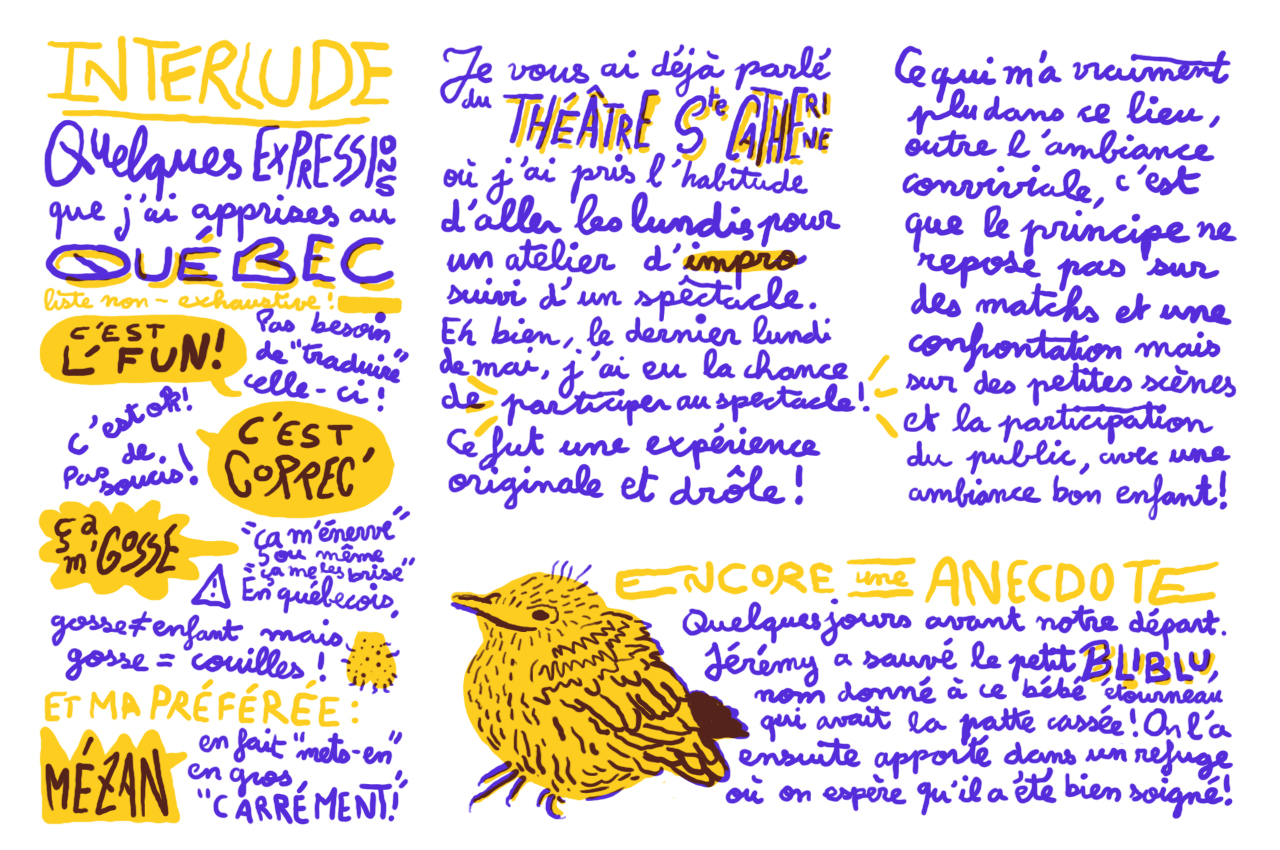 INTERLUDE
Quelques EXPRESSIONS
que j'ai apprises au
QUÉBEC
liste non-exhaustive !
C'EST
L' FUN!
Pas besoin
de "traduire"
celle-ci !
c'est ok!
de
Pas soucis!
C'EST
CORREC'
ça
m'GOSSE
"ça m'énerve"
ou même
"ça me les brise"
⚠ En québecois,
gosse ≠ enfant mais
gosse = couilles !
ET MA PRÉFÉRÉE :
MÉZAN
en fait "mets-en"
en gros
"CARRÉMENT!"
Je vous ai déjà parlé
du THÉÂTRE Ste CATHERINE
où j'ai pris l'habitude
d'aller les lundis pour
un atelier d'impro
suivi d'un spectacle.
Eh bien, le dernier lundi
de mai, j'ai eu la chance
de participer au spectacle!
Ce fut une expérience
originale et drôle !
Ce qui m'a vraiment
plu dans ce lieu,
outre l'ambiance
conviviale, c'est
que le principe ne
repose pas sur
des matchs et une
confrontation mais
sur des petites scènes
et la participation
du public, avec une
ambiance bon enfant!
ENCORE une ANECDOTE
Quelques jours avant notre départ.
Jérémy a sauvé le petit BLIBLU,
nom donné à ce bébé étourneau
qui avait la patte cassée! On l'a
ensuite apporté dans un refuge
où on espère qu'il a été bien soigné!